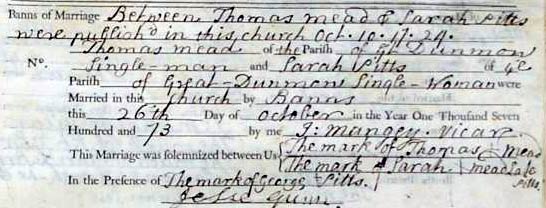 Banns of Marriage Between Thomas Mead & Sarah Pitts
were publish'd in this church Oct. 10. 17. 24.
Thomas Mead of the Parish of Gt Dunmow
No. Single-man and Sarah Pitts of ye
Parish of Great-Dunmow Single-Woman were
Married in this Church by Banns
this 26th Day of October in the Year One Thousand Seven
Hundred and 73 by me J: Mangey. Vicar.
This Marriage was solemnized between Us { The mark of Thomas Mead
The mark of Sarah Mead late Pitts.
In the Presence of The mark of George Pitts.